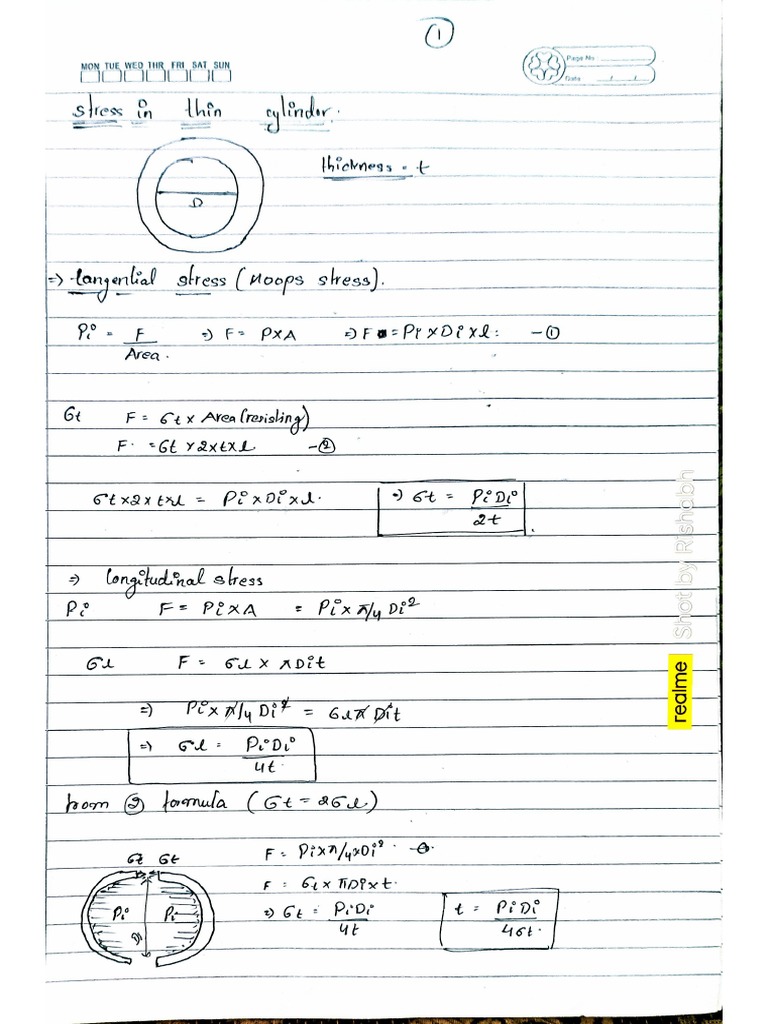 ①
MON TUE WED THR FRI SAT SUN
Page No :
Date / /
stress in thin cylinder.
thickness = t
D
=> tangential stress (Hoops stress).
Pi = F/Area. => F = P×A => F = Pi×Di×l: -①
σt F = σt × Area (resisting)
F. = σt × 2×t×l -②
σt×2×t×l = Pi×Di×l. => σt = PiDi/2t
=> longitudinal stress
Pi F = Pi×A = Pi×π/4 Di²
σl F = σl × πDit
=> Pi×π/4 Di² = σlπDit
=> σl = PiDi/4t.
from ② formula (σt = 2σl)
σt σt
F = Pi×π/4×Di².
F = σt × πDi×t.
Pi Pi
Di
=> σt = PiDi/4t
t = PiDi/4σt.
realme Shot by Rishabh